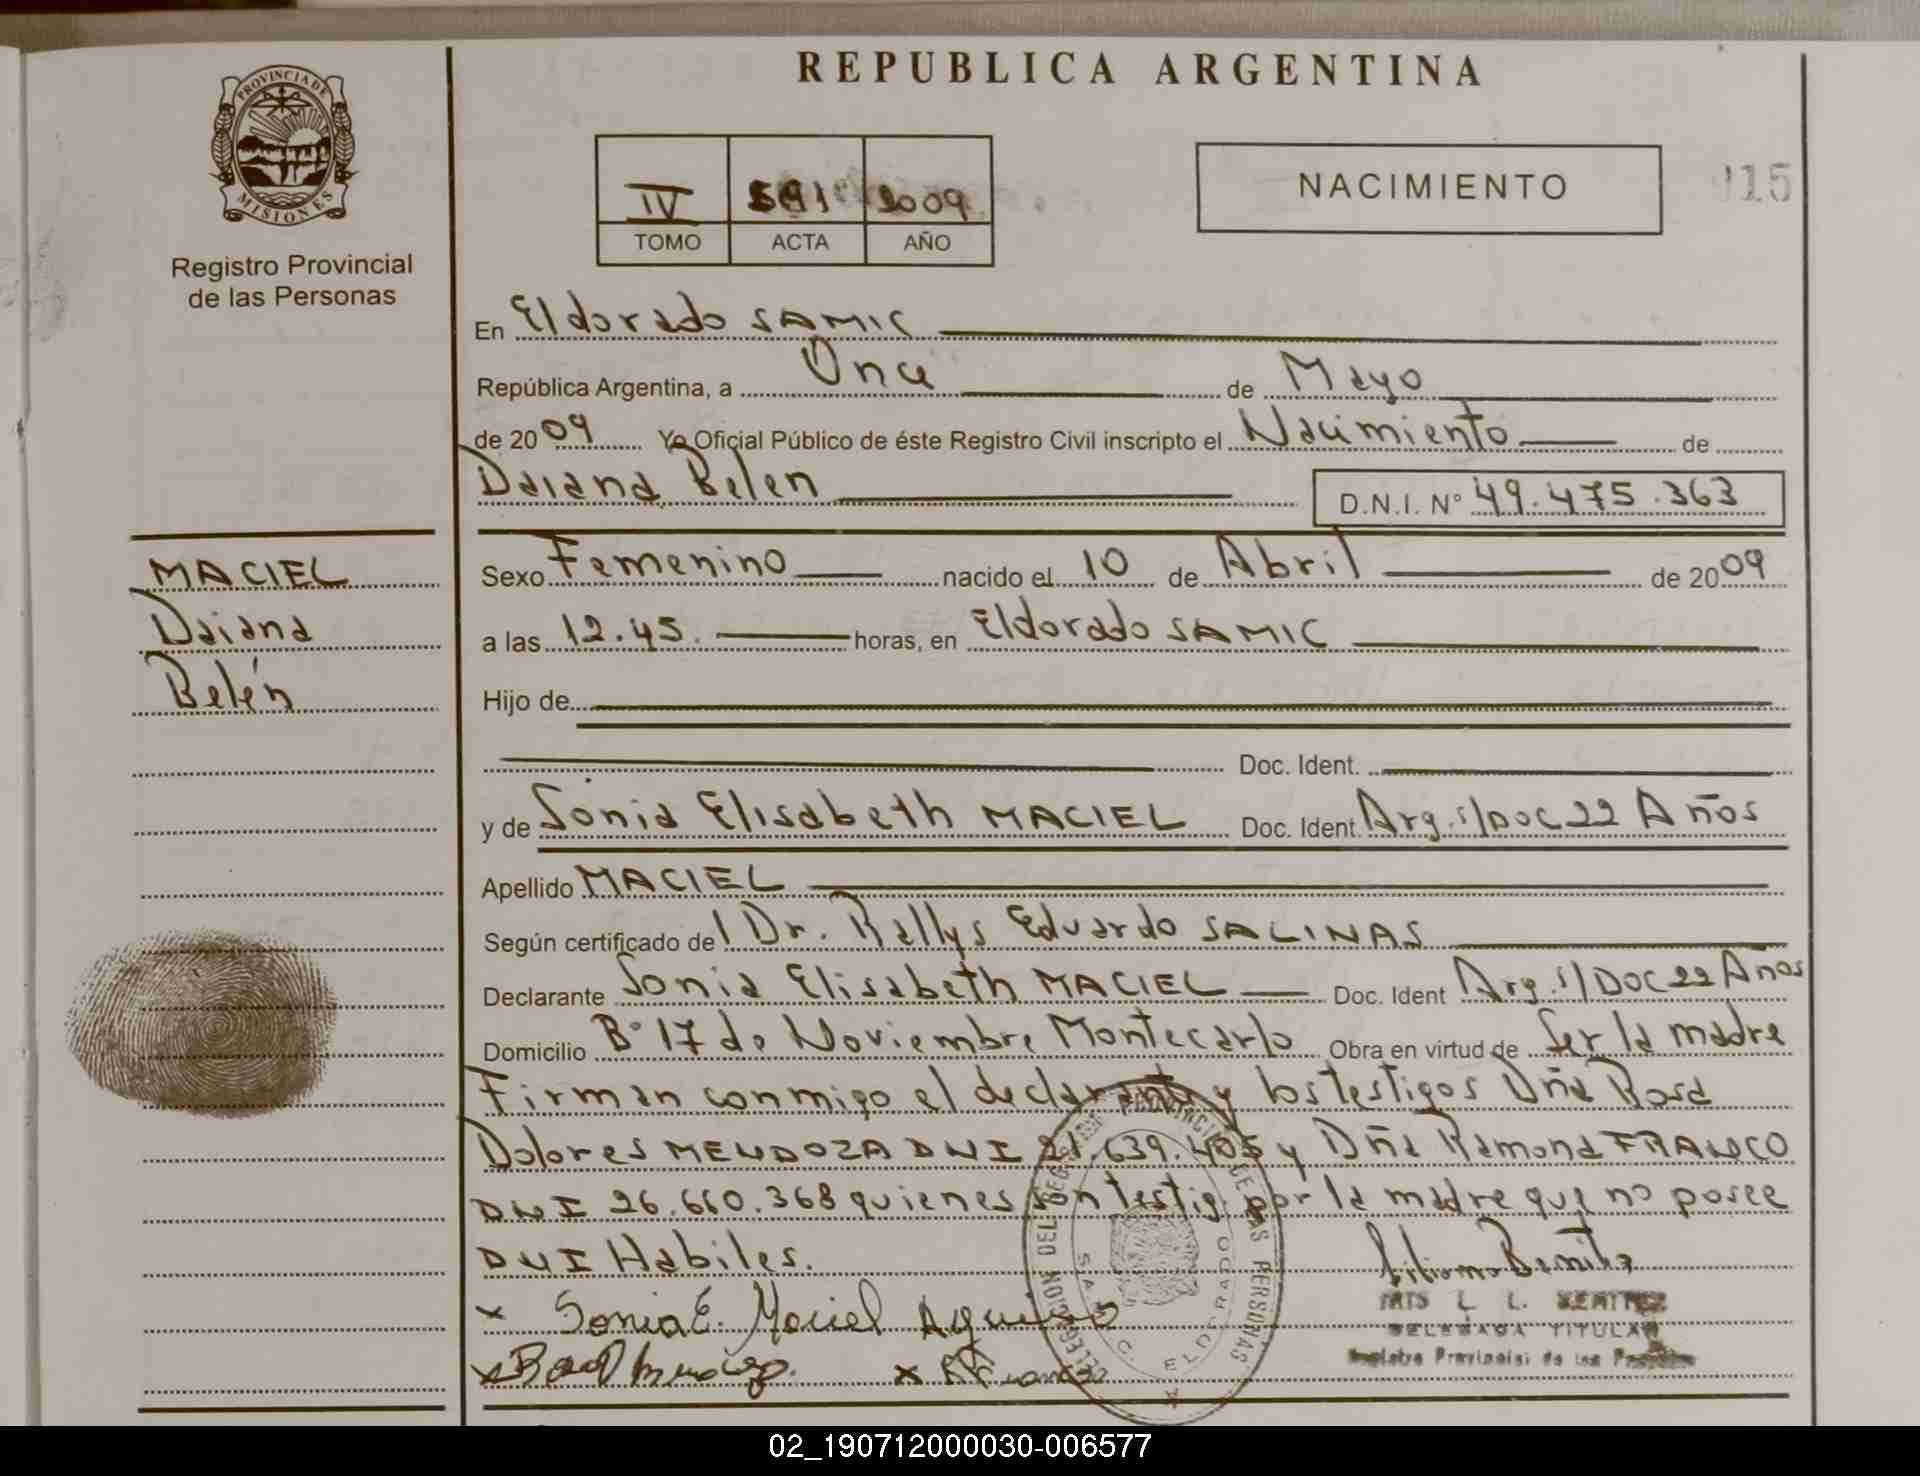 REPUBLICA ARGENTINA
PROVINCIA DE
MISIONES
Registro Provincial
de las Personas
IV 2009
TOMO ACTA AÑO
NACIMIENTO
115
En Eldorado SAMIC
República Argentina, a Once de Mayo
de 2009 Yo Oficial Público de éste Registro Civil inscripto el Nacimiento de
Daiana Belen D.N.I. N° 49.475.363
MACIEL
Daiana
Belén
Sexo Femenino nacido el 10 de Abril de 2009
a las 12.45. horas, en Eldorado SAMIC
Hijo de
Doc. Ident.
y de Sonia Elisabeth MACIEL Doc. Ident. Arg. s/DOC 22 Años
Apellido MACIEL
Según certificado del Dr. Rallys Eduardo SALINAS
Declarante Sonia Elisabeth MACIEL Doc. Ident Arg. s/DOC 22 Anos
Domicilio B° 17 de Noviembre Montecarlo Obra en virtud de Ser la madre
Firman conmigo el declarante y los testigos Dña Rosa
Dolores MENDOZA DNI 21.639.405 y Dña Ramona FRANCO
DNI 26.660.368 quienes son testig. por la madre que no posee
DNI Habiles.
x Sonia E. Maciel
x x
L. L. BENITEZ
DELEGADA TITULAR
Registro Provincial de las Personas
PROVINCIAL DE LAS PERSONAS
S.A.M.I.C. ELDORADO
02_190712000030-006577